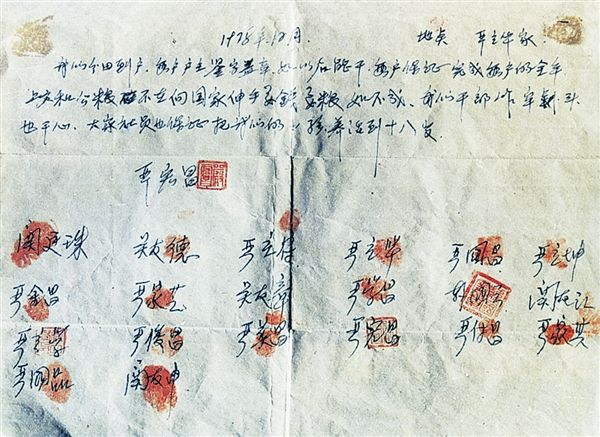 1978年12月 地点 严立华家
我们分田到户,每户户主签字盖章,如以后能干,每户保证完成每户的全年
上交和公粮 不在向国家伸手要钱要粮,如不成,我们干部作牢刹头
也干心,大家社员也保证把我们的小孩养活到十八岁.
严宏昌
关廷珠 关友德 严立符 严立华 严国昌 严立坤
严金昌 严家芝 关友章 严学昌 韩国云 关友江
严立学 严俊昌 严美昌 严宏昌 严付昌 严家其
严国品 关友申